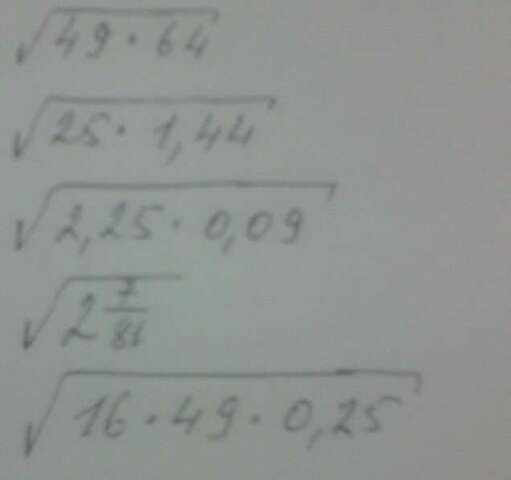 √49 · 64
√25 · 1,44
√2,25 · 0,09
√2 7/81
√16 · 49 · 0,25